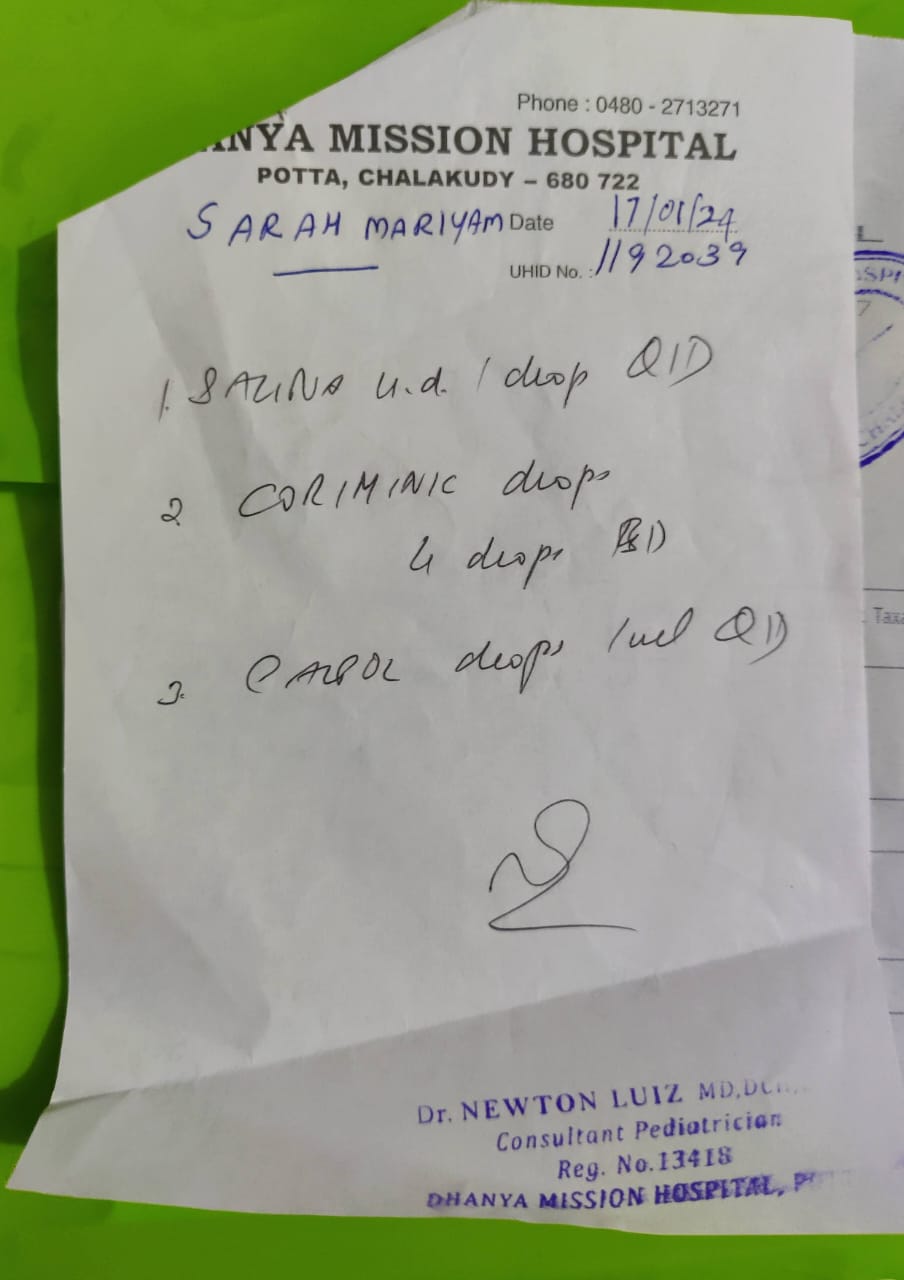 Phone : 0480 - 2713271
ANYA MISSION HOSPITAL
POTTA, CHALAKUDY – 680 722
SARAH MARIYAM Date 17/01/24
UHID No. : 1192039
1. SALINA n.d. 1 drop QID
2 CORIMINIC drops
4 drops BD
3. CALPOL drops 1ml QID
Dr. NEWTON LUIZ MD, DCH
Consultant Pediatrician
Reg. No.13418
DHANYA MISSION HOSPITAL,
SPI
Taxa